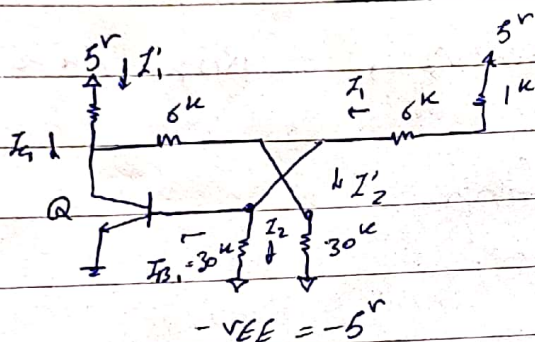 5v ↓ I'1
5v
6k
I1
←
6k
1k
IC1 ↓
Q
↓ I'2
←
IB1
30k
I2
↓
30k
-VEE = -5v